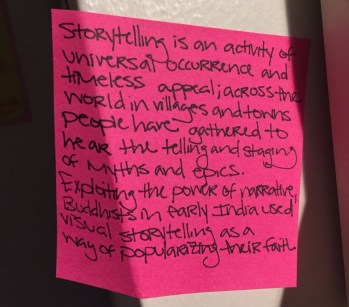 Storytelling is an activity of
universal occurrence and
timeless appeal; across the
world in villages and towns
people have gathered to
hear the telling and staging
of myths and epics.
Exploiting the power of narrative,
Buddhists in Early India used
visual storytelling as a
way of popularizing their faith